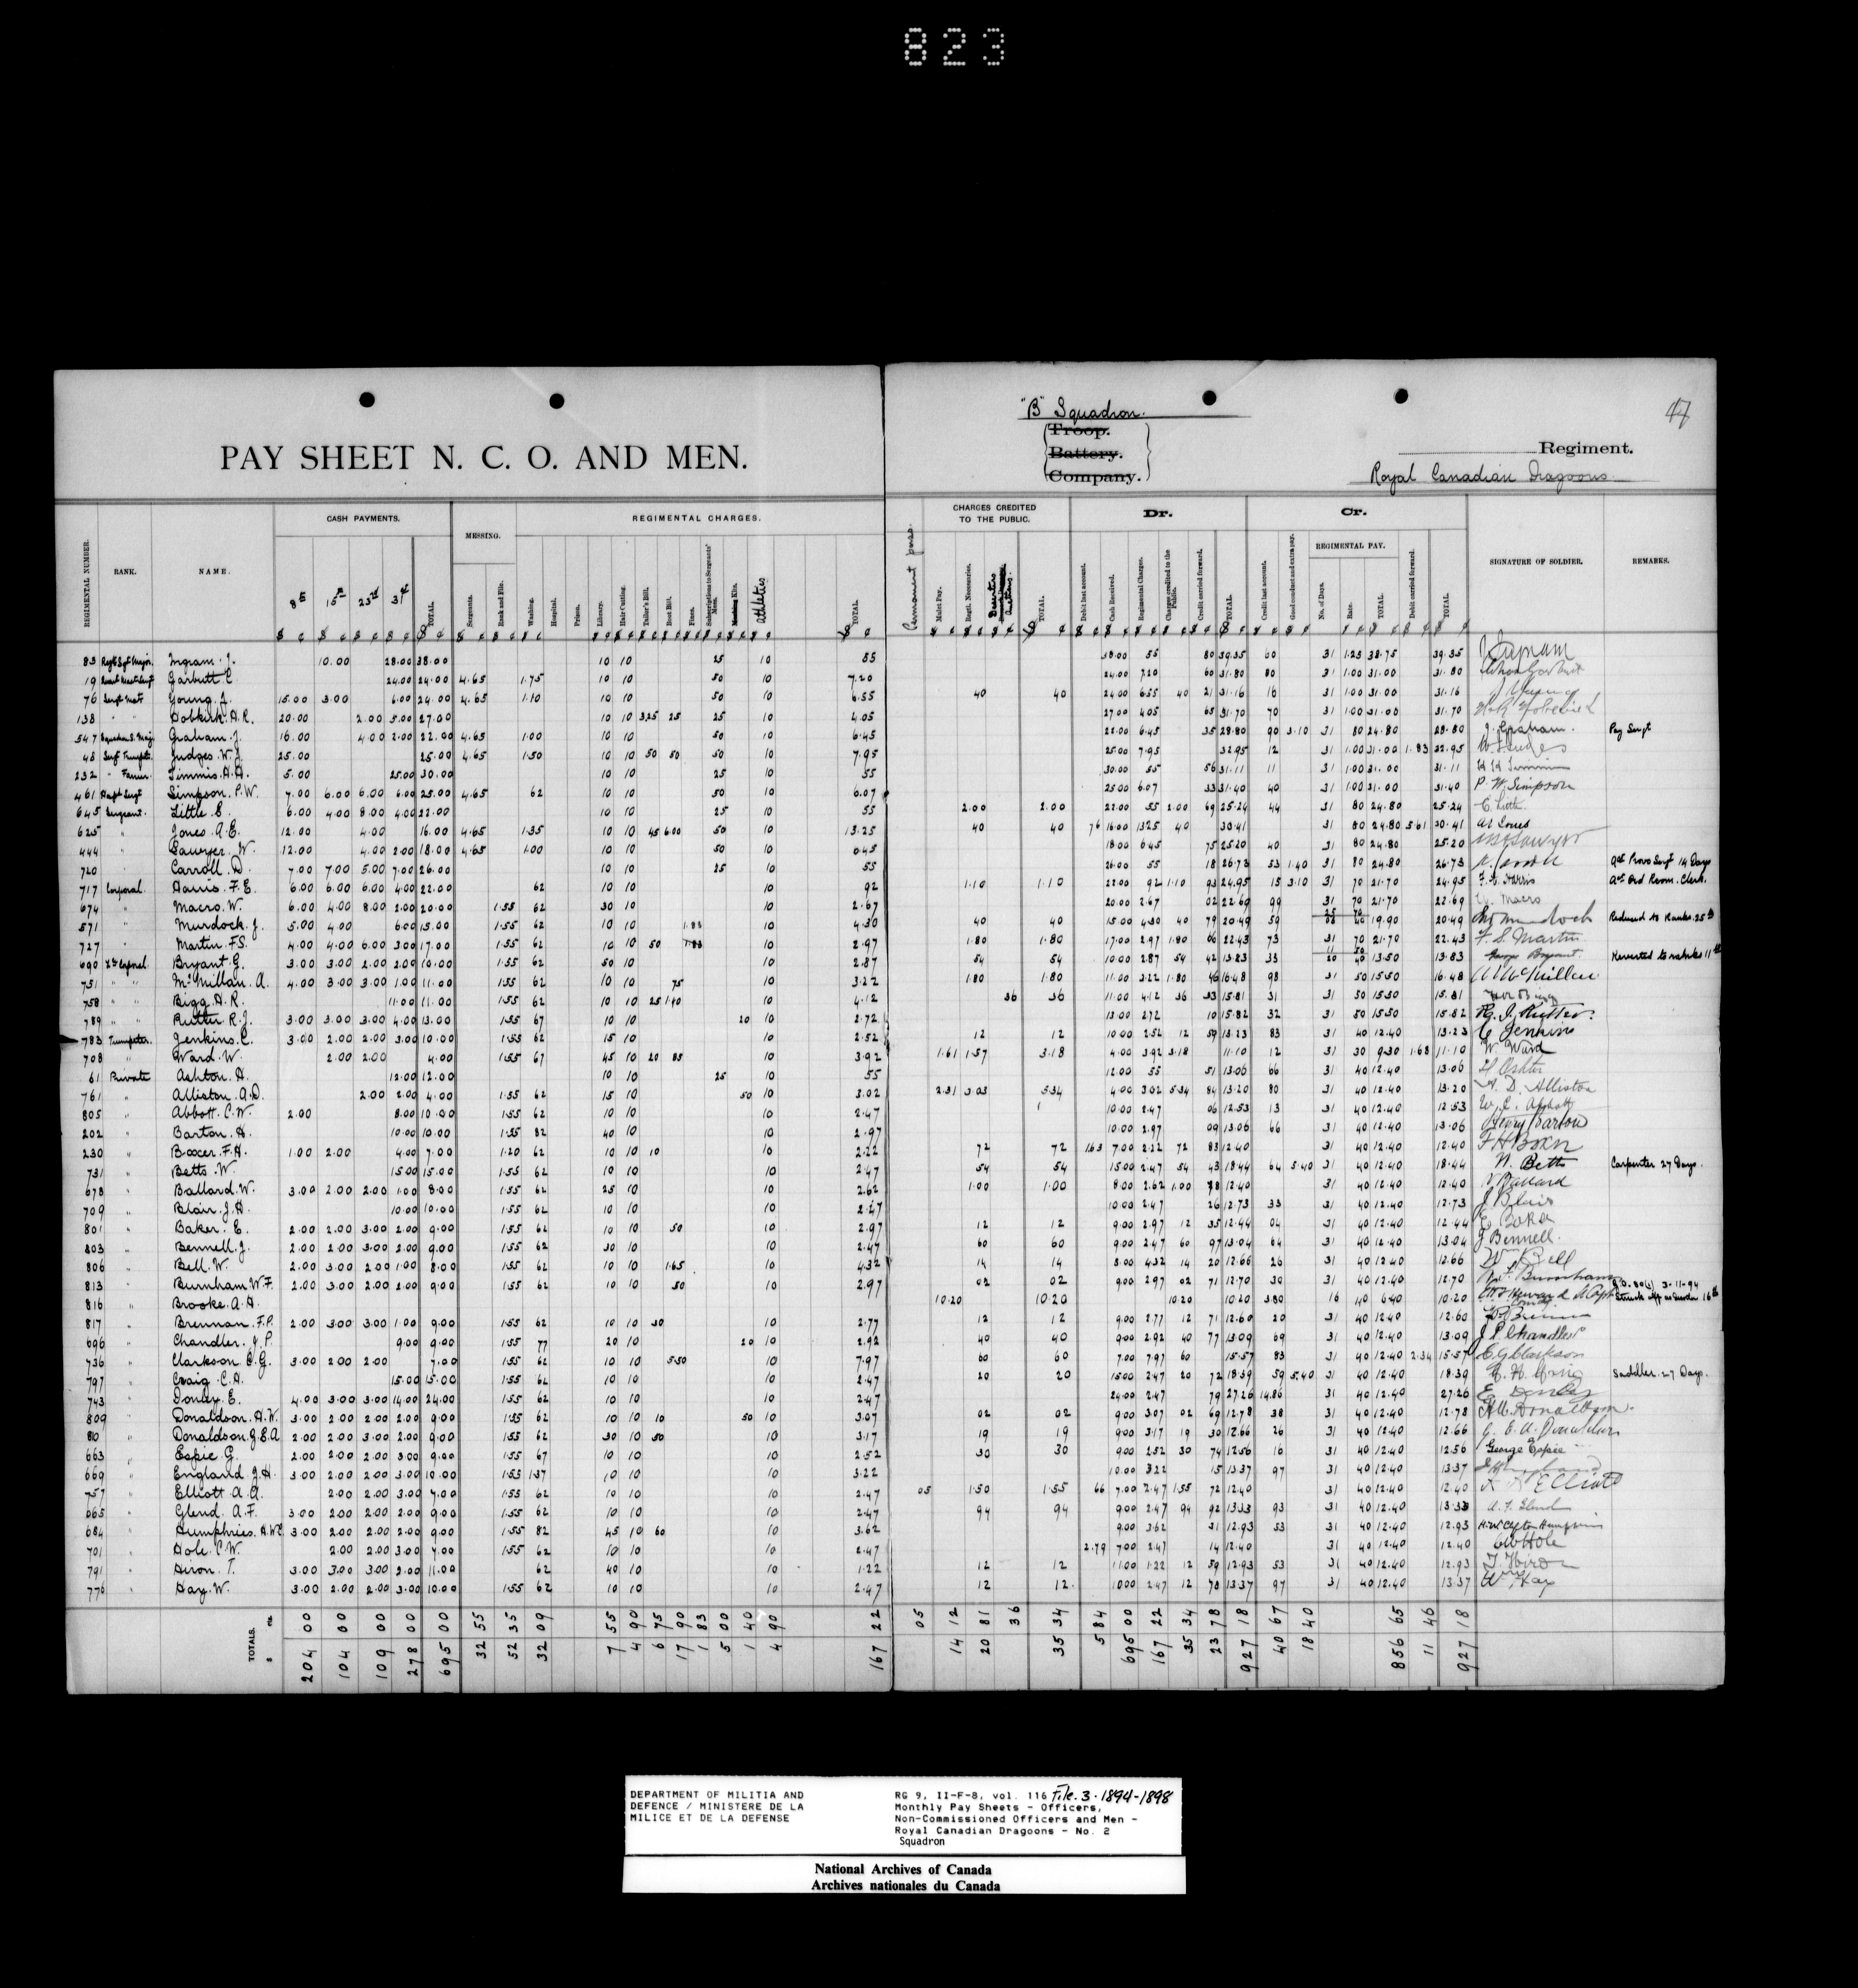 823
"B" Squadron.
Troop.
Battery.
Company.
47
PAY SHEET N. C. O. AND MEN.
Regiment.
Royal Canadian Dragoons
CASH PAYMENTS. MESSING. REGIMENTAL CHARGES. CHARGES CREDITED TO THE PUBLIC. Dr. Cr.
REGIMENTAL NUMBER. RANK. NAME. 8th 15th 23rd 31st TOTAL Sergeants. Rank and File. Washing. Hospital. Prison. Library. Hair Cutting. Tailor's Bill. Boot Bill. Fines. Subscriptions to Sergeants' Mess. Kits. Athletics TOTAL
Mulct Pay. Regtl. Necessaries. TOTAL. Debit last account. Cash Received. Regimental Charges. Charges credited to the Public. Credit carried forward. TOTAL. Credit last account. Good conduct and extra pay. REGIMENTAL PAY. No. of Days. Rate. TOTAL. Debit carried forward. TOTAL. SIGNATURE OF SOLDIER. REMARKS.
83 Regtl Sgt Major. Ingram. J. 10.00 28.00 38.00 10 10 25 10 55 38.00 55 80 39.35 60 31 1.25 38.75 39.35
19 Garbutt C. 24.00 24.00 4.65 1.75 10 10 50 10 7.20 24.00 7.20 60 31.80 80 31 1.00 31.00 31.80
76 Young. J. 15.00 3.00 6.00 24.00 4.65 1.10 10 10 50 10 6.55 40 40 24.00 6.55 40 21 31.16 16 31 1.00 31.00 31.16
138 " " Hobkirk. A.R. 20.00 2.00 5.00 27.00 10 10 3.25 25 25 10 4.05 27.00 4.05 65 31.70 70 31 1.00 31.00 31.70
547 Squadron S. Maj. Graham. J. 16.00 4.00 2.00 22.00 4.65 1.00 10 10 50 10 6.45 22.00 6.45 35 28.80 90 3.10 31 80 24.80 28.80 J. Graham. Pay Sergt
48 Judges. W.J. 25.00 25.00 4.65 1.50 10 10 50 50 50 10 7.95 25.00 7.95 32.95 12 31 1.00 31.00 1.83 32.95
232 " Farrier. Timmis. H.H. 5.00 25.00 30.00 10 10 25 10 55 30.00 55 56 31.11 11 31 1.00 31.00 31.11
461 Simpson. P.W. 7.00 6.00 6.00 6.00 25.00 4.65 62 10 10 50 10 6.07 25.00 6.07 33 31.40 40 31 1.00 31.00 31.40 P. W. Simpson
645 Sergeant. Little. E. 6.00 4.00 8.00 4.00 22.00 10 10 25 10 55 2.00 2.00 22.00 55 2.00 69 25.24 44 31 80 24.80 25.24
625 " Jones. A.E. 12.00 4.00 16.00 4.65 1.35 10 10 45 6.00 50 10 13.25 40 40 76 16.00 13.25 40 30.41 31 80 24.80 5.61 30.41
444 " Sawyer. W. 12.00 4.00 2.00 18.00 4.65 1.00 10 10 50 10 6.45 18.00 6.45 75 25.20 40 31 80 24.80 25.20
720 Carroll. D. 7.00 7.00 5.00 7.00 26.00 10 10 25 10 55 26.00 55 18 26.73 53 1.40 31 80 24.80 26.73 Provo Sergt 14 Days
717 Corporal. Harris. F.E. 6.00 6.00 6.00 4.00 22.00 62 10 10 10 92 1.10 1.10 22.00 92 1.10 93 24.95 15 3.10 31 70 21.70 24.95 Ord Room. Clerk.
674 " Macro. W. 6.00 4.00 8.00 2.00 20.00 1.55 62 30 10 10 2.67 20.00 2.67 02 22.69 99 31 70 21.70 22.69 Macro
571 " Murdock. J. 5.00 4.00 6.00 15.00 1.55 62 10 10 1.83 10 4.30 40 40 15.00 4.30 40 79 20.49 59 19.90 20.49 Reduced to Ranks. 25th
727 Martin. F.S. 4.00 4.00 6.00 3.00 17.00 1.55 62 10 10 50 10 2.97 1.80 1.80 17.00 2.97 1.80 66 22.43 73 31 70 21.70 22.43 F. S. Martin
690 Bryant. G. 3.00 3.00 2.00 2.00 10.00 1.55 62 50 10 10 2.87 54 54 10.00 2.87 54 42 13.83 33 13.50 13.83 George Bryant. Reverted to ranks 11th
751 " " McMillan. A. 4.00 3.00 3.00 1.00 11.00 1.55 62 10 10 75 10 3.22 1.80 1.80 11.00 3.22 1.80 46 16.48 98 31 50 15.50 16.48
758 " " Bigg. H.R. 11.00 11.00 1.55 62 10 10 25 1.40 10 4.12 36 36 11.00 4.12 36 33 15.81 31 31 50 15.50 15.81
789 " " Rutter. R.J. 3.00 3.00 3.00 4.00 13.00 1.55 67 10 10 20 10 2.72 13.00 2.72 10 15.82 32 31 50 15.50 15.82 R. J. Rutter.
783 Trumpeter. Jenkins. C. 3.00 2.00 2.00 3.00 10.00 1.55 62 15 10 10 2.52 12 12 10.00 2.52 12 59 13.23 83 31 40 12.40 13.23 C Jenkins
708 " Ward. W. 2.00 2.00 4.00 1.55 67 45 10 20 85 10 3.92 1.61 1.57 3.18 4.00 3.92 3.18 11.10 12 31 30 9.30 1.68 11.10 W. Ward
61 Private Ashton. H. 12.00 12.00 10 10 25 10 55 12.00 55 51 13.06 66 31 40 12.40 13.06 H Ashton
761 " Alliston. A.D. 2.00 2.00 4.00 1.55 62 15 10 50 10 3.02 2.31 3.03 5.34 4.00 3.02 5.34 84 13.20 80 31 40 12.40 13.20 A. D. Alliston
805 " Abbott. C.W. 2.00 8.00 10.00 1.55 62 10 10 10 2.47 10.00 2.47 06 12.53 13 31 40 12.40 12.53
202 " Barton. H. 10.00 10.00 1.55 82 40 10 10 2.97 10.00 2.97 09 13.06 66 31 40 12.40 13.06 Henry Barton
230 " Boxer. F.H. 1.00 2.00 4.00 7.00 1.20 62 10 10 10 10 2.22 72 72 1.63 7.00 2.22 72 83 12.40 31 40 12.40 12.40
731 " Betts. W. 15.00 15.00 1.55 62 10 10 10 2.47 54 54 15.00 2.47 54 43 18.44 64 5.40 31 40 12.40 18.44 W. Betts Carpenter 27 Days.
678 " Ballard. W. 3.00 2.00 2.00 1.00 8.00 1.55 62 25 10 10 2.62 1.00 1.00 8.00 2.62 1.00 78 12.40 31 40 12.40 12.40 Ballard
709 " Blair. J.H. 10.00 10.00 1.55 62 10 10 10 2.47 10.00 2.47 26 12.73 33 31 40 12.40 12.73 J Blair
801 " Baker. E. 2.00 2.00 3.00 2.00 9.00 1.55 62 10 10 50 10 2.97 12 12 9.00 2.97 12 35 12.44 04 31 40 12.40 12.44 E. Baker
803 " Bennell. J. 2.00 2.00 3.00 2.00 9.00 1.55 62 30 10 10 2.47 60 60 9.00 2.47 60 97 13.04 64 31 40 12.40 13.04 J Bennell.
806 " Bell. W. 2.00 3.00 2.00 1.00 8.00 1.55 62 10 10 1.65 10 4.32 14 14 8.00 4.32 14 20 12.66 26 31 40 12.40 12.66 Wm Bell
813 " Burnham. W.F. 2.00 3.00 2.00 2.00 9.00 1.55 62 10 10 50 10 2.97 02 02 9.00 2.97 02 71 12.70 30 31 40 12.40 12.70 Wm F. Burnham
816 " Brooke. A.H. 10.20 10.20 10.20 10.20 3.80 16 40 6.40 10.20 3-11-94 Struck off 16th
817 " Brennan. F.P. 2.00 3.00 3.00 1.00 9.00 1.55 62 10 10 30 10 2.77 12 12 9.00 2.77 12 71 12.60 20 31 40 12.40 12.60
696 " Chandler. J.P. 9.00 9.00 1.55 77 20 10 20 10 2.92 40 40 9.00 2.92 40 77 13.09 69 31 40 12.40 13.09 J. P. Chandler
736 " Clarkson. E.G. 3.00 2.00 2.00 7.00 1.55 62 10 10 5.50 10 7.97 60 60 7.00 7.97 60 15.57 83 31 40 12.40 2.34 15.57 E. G. Clarkson
797 " Craig. C.H. 15.00 15.00 1.55 62 10 10 10 2.47 20 20 15.00 2.47 20 72 18.39 59 5.40 31 40 12.40 18.39 Saddler. 27 Days.
743 " Donley. E. 4.00 3.00 3.00 14.00 24.00 1.55 62 10 10 10 2.47 24.00 2.47 79 27.26 14.86 31 40 12.40 27.26 E Donley
809 " Donaldson. H.W. 3.00 2.00 2.00 2.00 9.00 1.55 62 10 10 10 50 10 3.07 02 02 9.00 3.07 02 69 12.78 38 31 40 12.40 12.78
810 " Donaldson. G.E.A 2.00 2.00 3.00 2.00 9.00 1.55 62 30 10 50 10 3.17 19 19 9.00 3.17 19 30 12.66 26 31 40 12.40 12.66 G. E. A. Donaldson
663 " Espie. G. 2.00 2.00 2.00 3.00 9.00 1.55 67 10 10 10 2.52 30 30 9.00 2.52 30 74 12.56 16 31 40 12.40 12.56 George Espie
669 " England. J.H. 3.00 2.00 2.00 3.00 10.00 1.55 1.37 10 10 10 3.22 10.00 3.22 15 13.37 97 31 40 12.40 13.37
757 " Elliott. A.A. 2.00 2.00 3.00 7.00 1.55 62 10 10 10 2.47 05 1.50 1.55 66 7.00 2.47 1.55 72 12.40 31 40 12.40 12.40 Elliott
665 " Glend. A.F. 3.00 2.00 2.00 2.00 9.00 1.55 62 10 10 10 2.47 94 94 9.00 2.47 94 92 13.33 93 31 40 12.40 13.33 A. F. Glend
684 " Humphries. 3.00 2.00 2.00 2.00 9.00 1.55 82 45 10 60 10 3.62 9.00 3.62 31 12.93 53 31 40 12.40 12.93
701 " Hole. C.W. 2.00 2.00 3.00 7.00 1.55 62 10 10 10 2.47 2.79 7.00 2.47 14 12.40 31 40 12.40 12.40 C W Hole
791 " Hiron. T. 3.00 3.00 3.00 2.00 11.00 62 40 10 10 1.22 12 12 11.00 1.22 12 59 12.93 53 31 40 12.40 12.93 T. Hiron
776 " Hay. W. 3.00 2.00 2.00 3.00 10.00 1.55 62 10 10 10 2.47 12 12 10.00 2.47 12 78 13.37 97 31 40 12.40 13.37 Wm Hay
TOTALS. $ cts 204 00 104 00 109 00 278 00 695 00 32 55 52 35 32 09 7 55 4 90 6 75 17 90 1 83 5 00 1 40 4 90 167 22 05 14 12 20 81 36 35 34 5 84 695 00 167 22 35 34 23 78 927 18 40 67 18 40 856 65 11 46 927 18
DEPARTMENT OF MILITIA AND
DEFENCE / MINISTERE DE LA
MILICE ET DE LA DEFENSE
RG 9, II-F-8, vol. 116 File. 3. 1894-1898
Monthly Pay Sheets - Officers,
Non-Commissioned Officers and Men -
Royal Canadian Dragoons - No. 2
Squadron
National Archives of Canada
Archives nationales du Canada